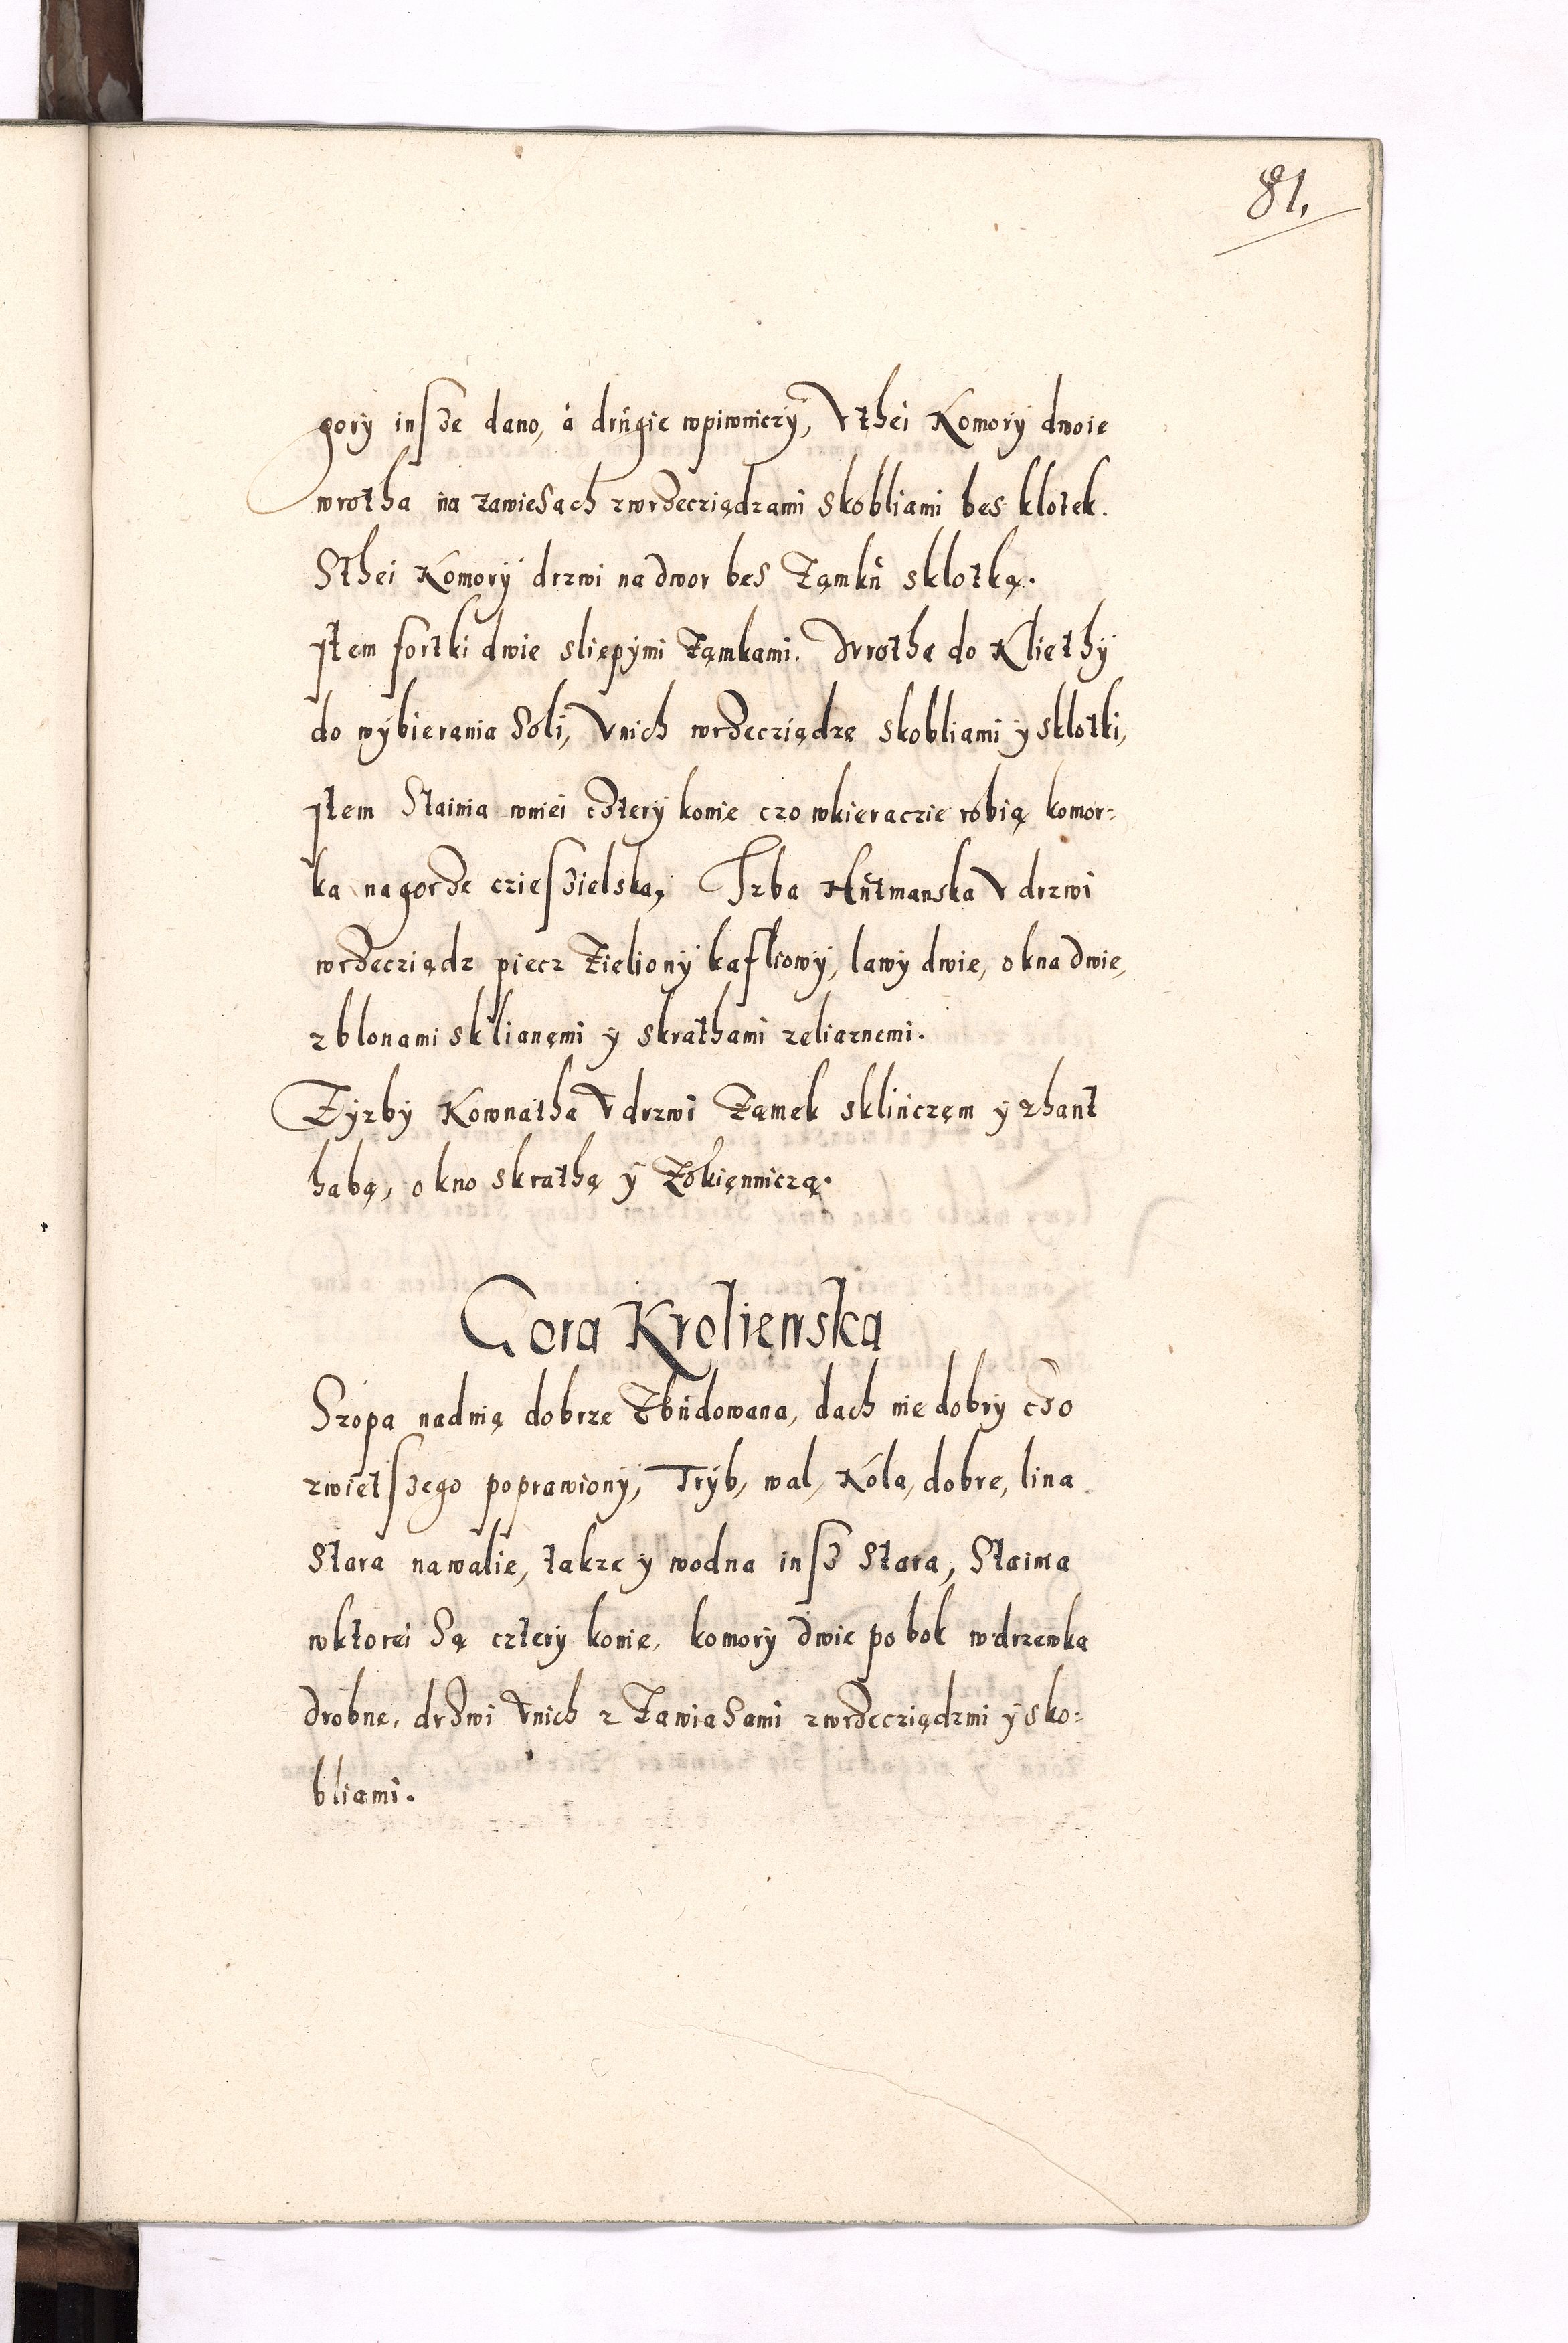 81.
gory insze dano, á drugie wpiwniczy, V thei Komory dwoie
wrotha na zawiesach zwrzecziądzami skobliami bes klotek.
Sthei Komory drzwi na dwor bes Zamku sklotką.
Item fortki dwie sliepymi Zamkami. Wrotha do Kliethy
do wybierania Soli, Vnich wrzecziądze skobliami y sklotki,
Item Stainia wniei cztery konie czo wkieraczie robią komor=
ka nagorze czieszielska, Izba Hutmanska V drzwi
wrzecziądz piecz Zieliony kafliowy, lawy dwie, okna dwie,
z blonami sklianemi y skrathami zeliaznemi.
Zyzby Kownatha V drzwi Zamek skliuczem y zhant
habą, okno skrathą y Zokienniczą.
Gora Kroliewska
Szopa nadnią dobrze Zbudowana, dach nie dobry czo
zwietszego poprawiony, Tryb, wal, Kola, dobre, lina
Stara nawalie, takze y wodna insz Stara, Stainia
wktorei Są cztery konie, komory dwie po bok wdrzewka
drobne, drzwi Vnich z Zawiasami zwrzecziądzmi y sko=
bliami.